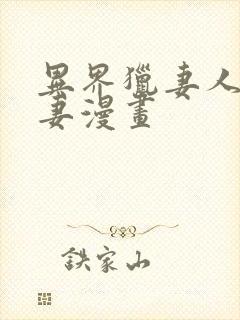 異界獵妻人
妻漫畫
鉄家山